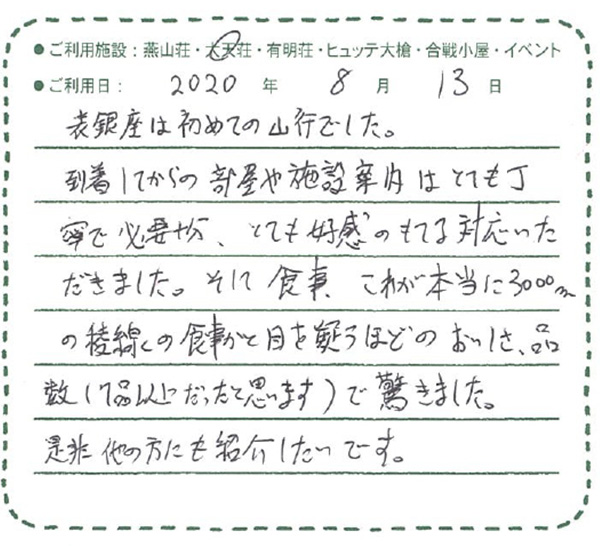 ●ご利用施設：燕山荘・大天荘・有明荘・ヒュッテ大槍・合戦小屋・イベント
●ご利用日： 2020 年 8 月 13 日
表銀座は初めての山行でした。
到着してからの部屋や施設案内はとても丁
寧で必要十分、とても好感のもてる対応いた
だきました。そして食事、これが本当に3000m
の稜線での食事かと目を疑うほどのおいしさ、品
数(7品以上だったと思います)で驚きました。
是非他の方にも紹介したいです。